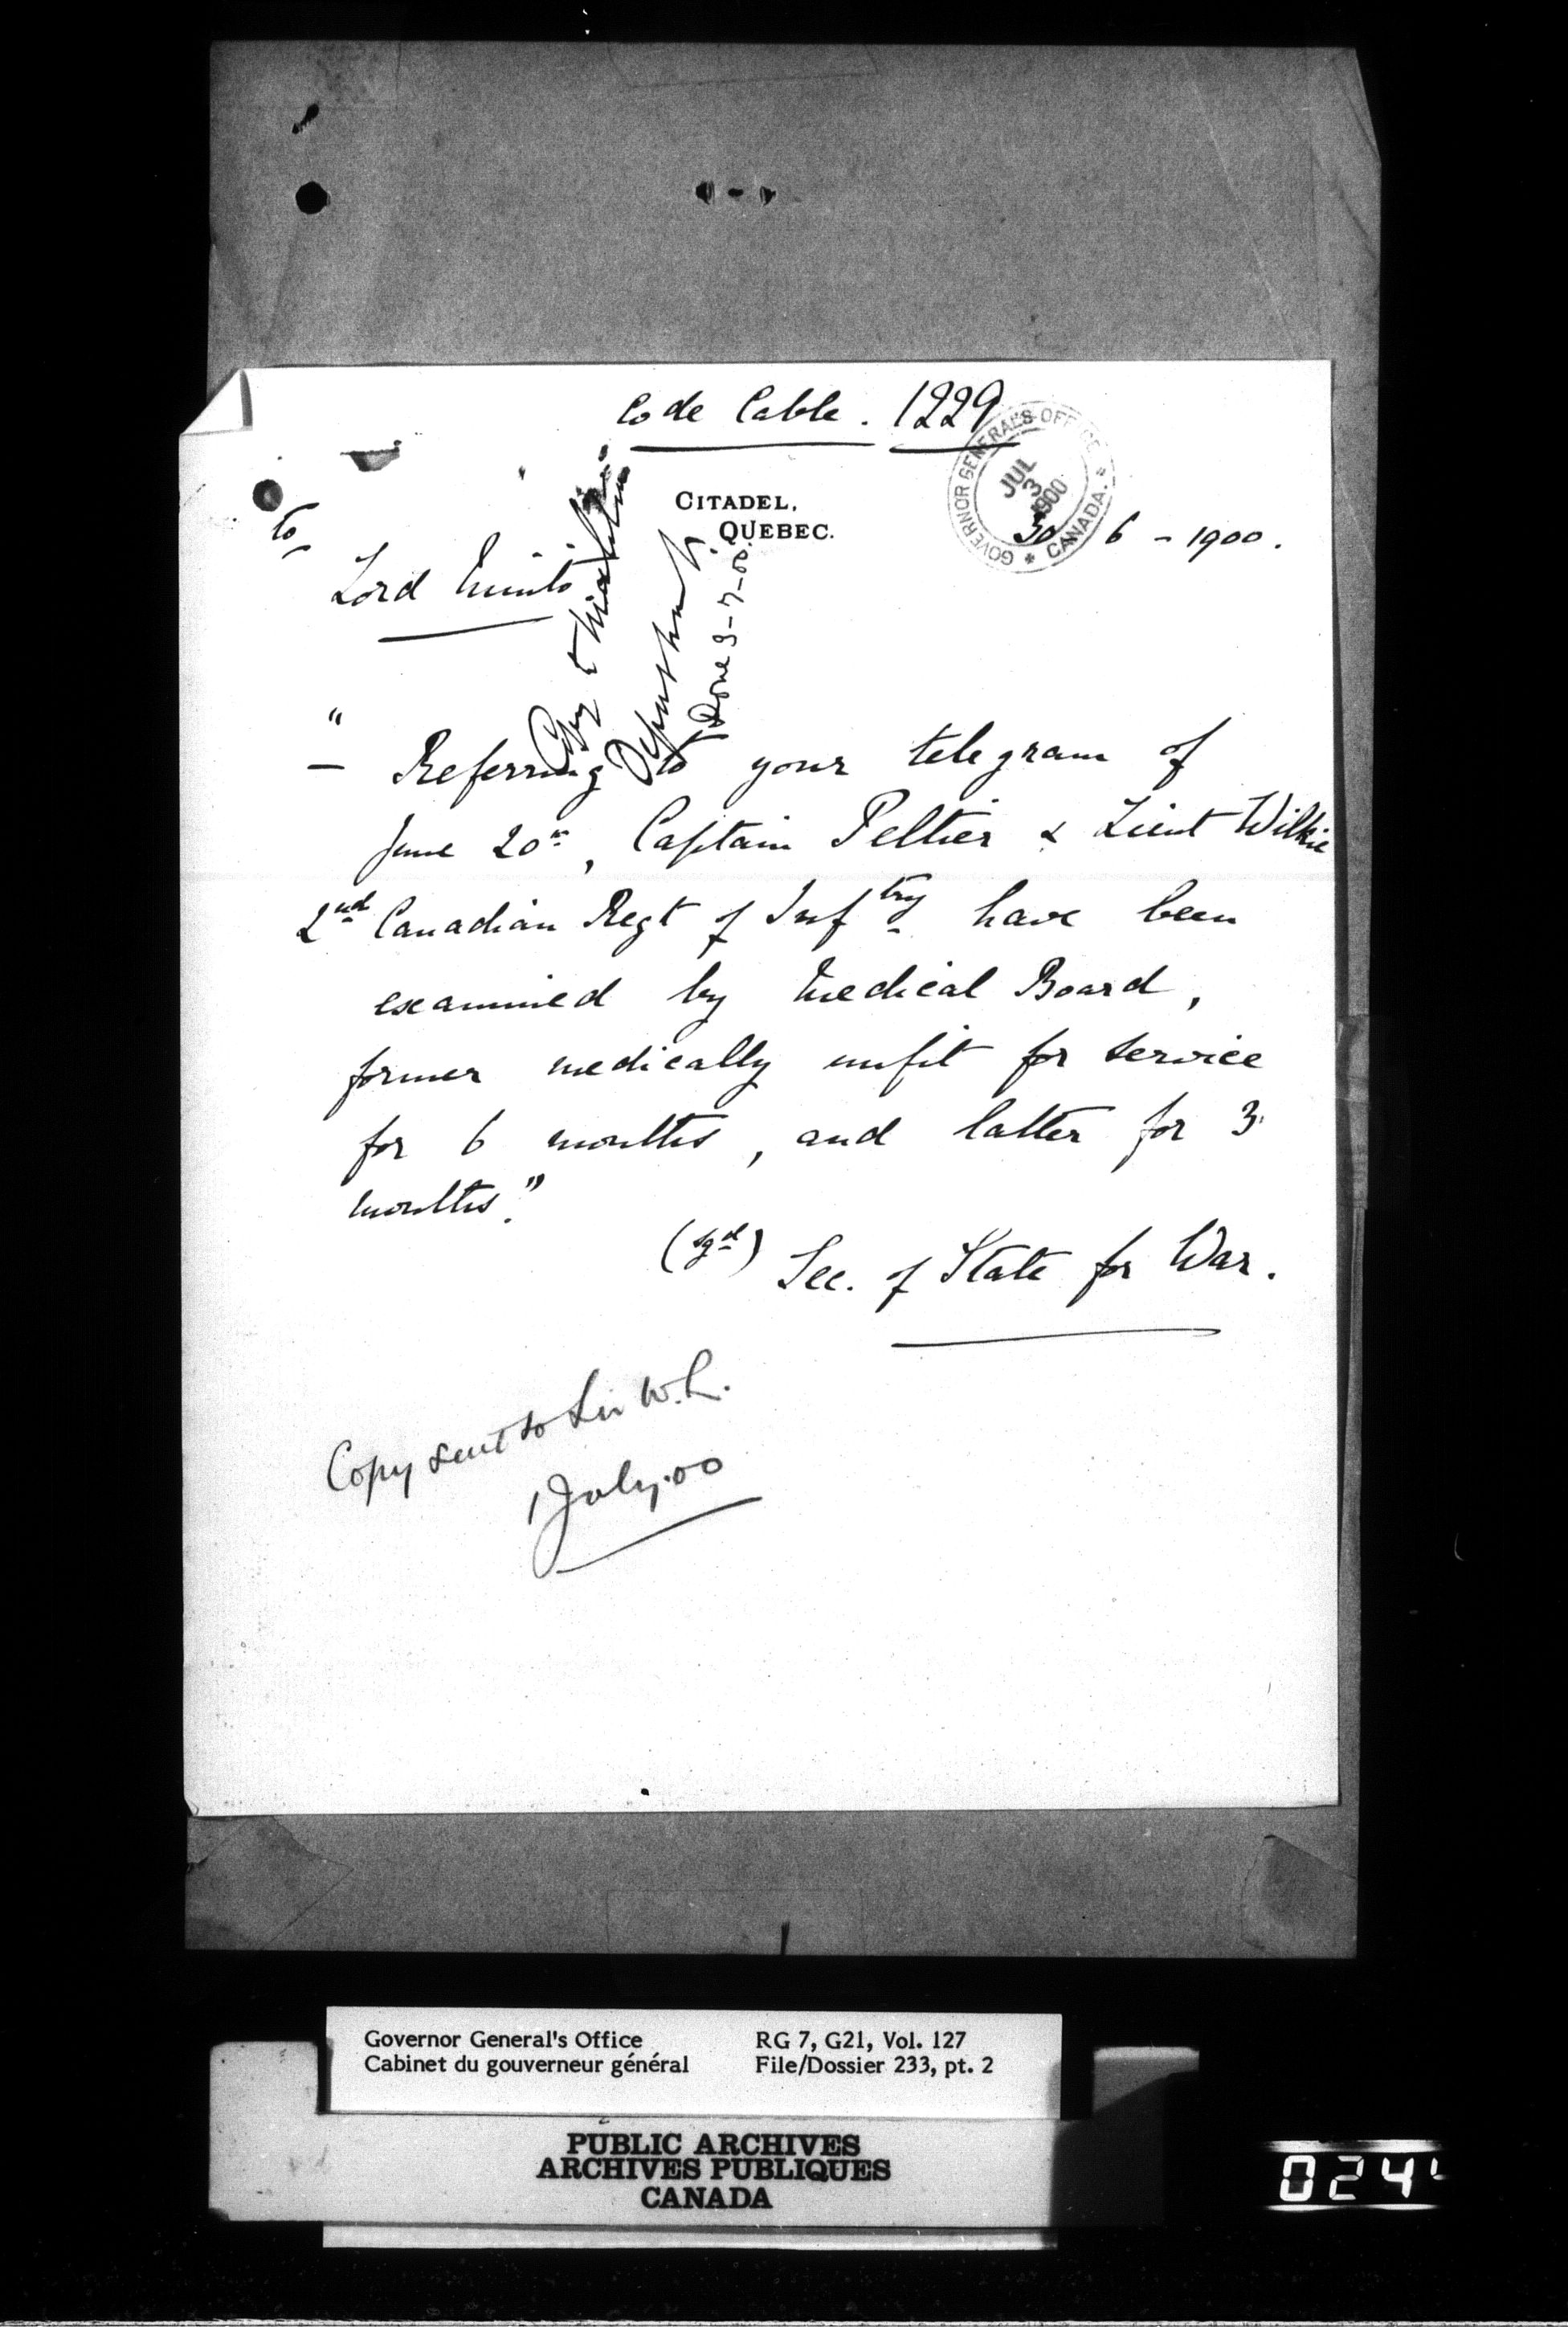 Code Cable. 1229
GOVERNOR GENERAL'S OFFICE
CANADA.
JUL
3
1900
CITADEL,
QUEBEC.
30 6 - 1900.
to
Lord Minto
Copy to
Department
Done 3-7-00.
" - Referring to your telegram of
June 20th, Captain Peltier & Lieut Wilkie
2nd Canadian Regt of Inftry have been
examined by Medical Board,
former medically unfit for service
for 6 months, and latter for 3
months."
(sgd) Sec. of State for War.
Copy sent to Sir W.L.
1 July. 00
Governor General's Office
Cabinet du gouverneur général
RG 7, G21, Vol. 127
File/Dossier 233, pt. 2
PUBLIC ARCHIVES
ARCHIVES PUBLIQUES
CANADA
024